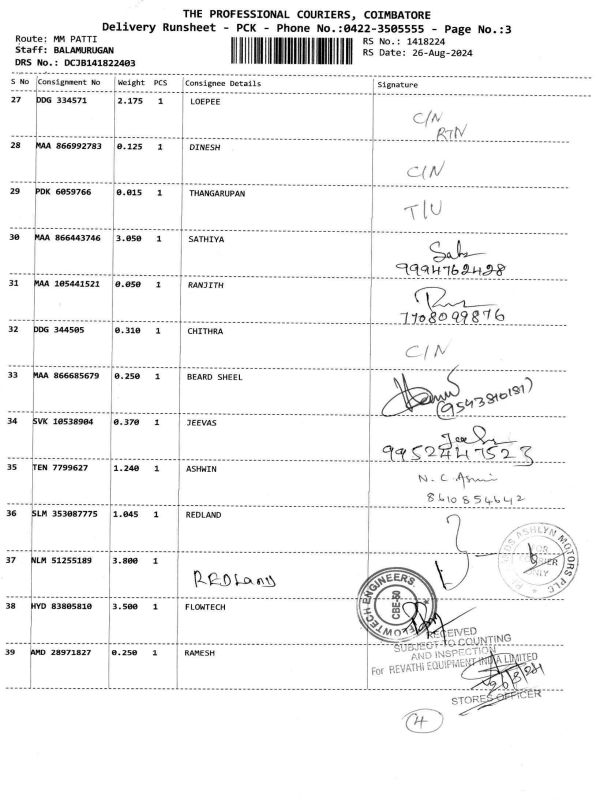 THE PROFESSIONAL COURIERS, COIMBATORE
Delivery Runsheet - PCK - Phone No.:0422-3505555 - Page No.:3
Route: MM PATTI
RS No.: 1418224
Staff: BALAMURUGAN
RS Date: 26-Aug-2024
DRS No.: DCJB141822403
S No Consignment No Weight PCS Consignee Details Signature
27 DDG 334571 2.175 1 LOEPEE
C/N
RTN
28 MAA 866992783 0.125 1 DINESH
C/N
29 PDK 6059766 0.015 1 THANGARUPAN
T/U
30 MAA 866443746 3.050 1 SATHIYA
9994762428
31 MAA 105441521 0.050 1 RANJITH
7708099876
32 DDG 344505 0.310 1 CHITHRA
C/N
33 MAA 866685679 0.250 1 BEARD SHEEL
(9543810181)
34 SVK 10538904 0.370 1 JEEVAS
9952447523
35 TEN 7799627 1.240 1 ASHWIN
N. C.
8610854642
36 SLM 353087775 1.045 1 REDLAND
ASHLYN MOTORS PLC
37 NLM 51255189 3.800 1
REDLAND
38 HYD 83805810 3.500 1 FLOWTECH
FLOWTECH ENGINEERS
CBE-50
RECEIVED
SUBJECT TO COUNTING
AND INSPECTION
For REVATHI EQUIPMENT INDIA LIMITED
39 AMD 28971827 0.250 1 RAMESH
STORES OFFICER
4